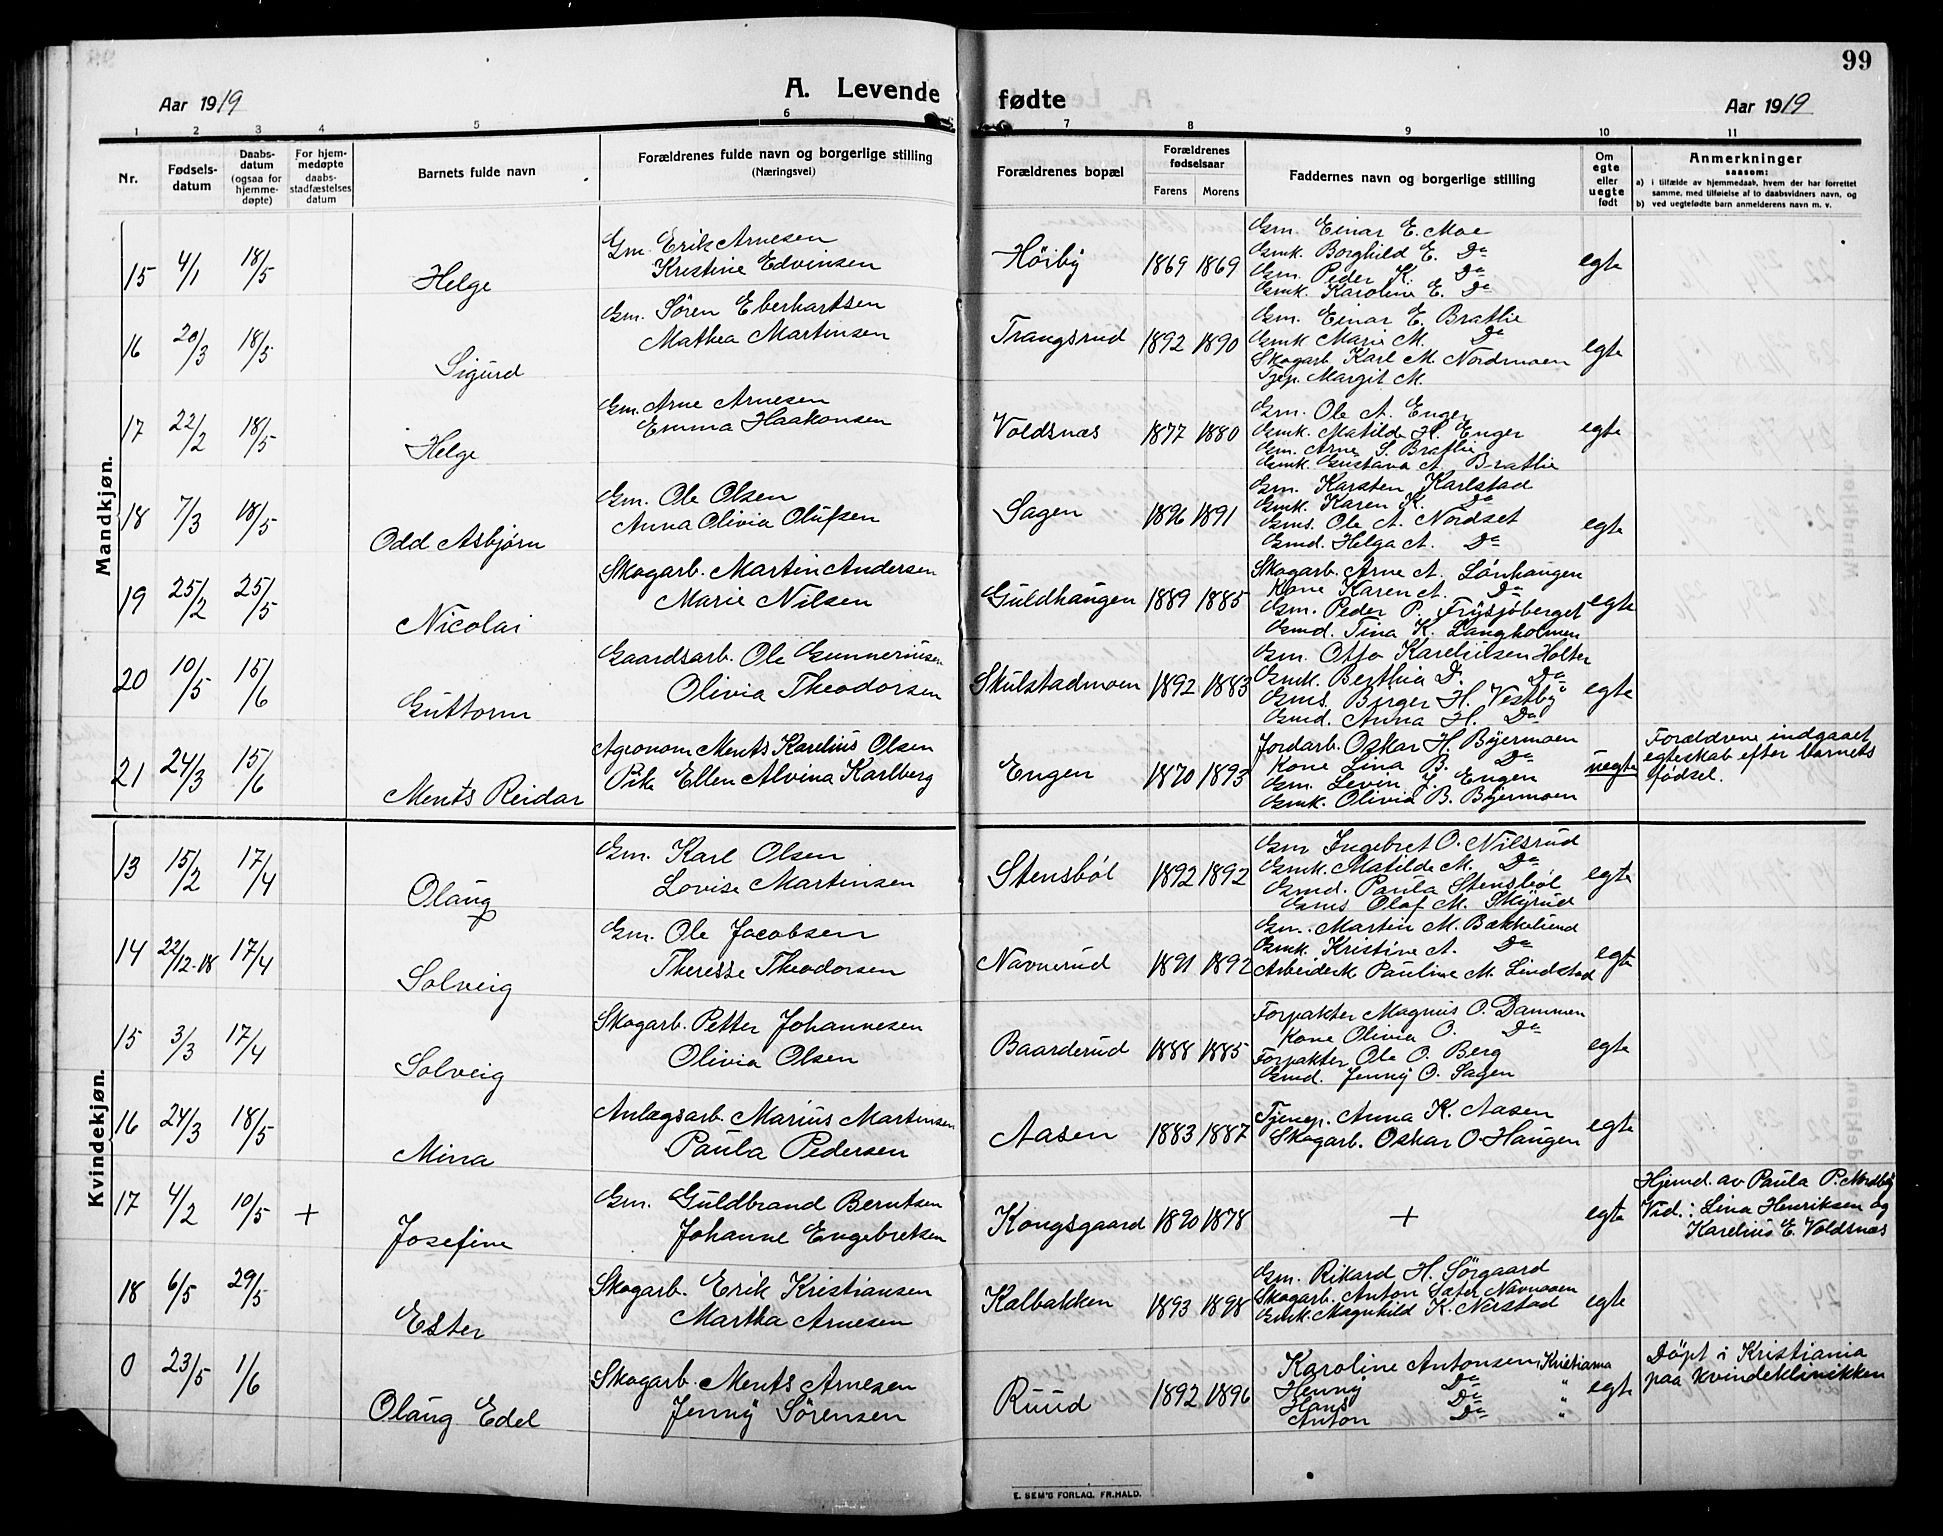 99
A. Levende fødte
Aar 1919
Aar 1919
1 2 3 4 5 6 7 8 9 10 11
Nr.
Fødsels-
datum
Daabs-
datum
(ogsaa for
hjemme-
døpte)
For hjem-
medøpte
daabs-
stadfæstelses
datum
Barnets fulde navn
Forældrenes fulde navn og borgerlige stilling
(Næringsvei)
Forældrenes bopæl
Forældrenes
fødselsaar
Farens Morens
Faddernes navn og borgerlige stilling
Om
egte
eller
uegte
født
Anmerkninger
saasom:
a) i tilfælde av hjemmedaab, hvem der har forrettet
samme, med tilføielse af to daabsvidners navn, og
b) ved uegtefødte barn anmelderens navn m. v.
Mandkjøn.
15 4/1 18/5 Helge
Gm. Erik Arnesen
Kristine Edvinsen
Høiby 1869 1869
Gm. Einar E. Moe
Gmk. Borghild E. Do
Gm. Peder K. Do
Gmk. Karoline E. Do
egte
16 20/3 18/5 Sigurd
Gm. Søren Eberhartsen
Mathea Martinsen
Trangsrud 1892 1890
Gm. Einar E. Brathe
Gmk Marie M. Do
Skogarb. Karl M. Nordmoen
Tjep. Margit M.
egte
17 22/2 18/5 Helge
Gm. Arne Arnesen
Emma Haakonsen
Voldsnæs 1877 1880
Gm. Ole A. Enger
Gmk. Matilde H. Enger
Gm. Arne S. Brathe
Gmk. Gustava A. Brathe
egte
18 7/3 18/5 Odd Asbjørn
Gm. Ole Olsen
Anna Olivia Olufsen
Sagen 1896 1891
Gm. Karsten Karlstad
Gmk. Karen K. Do
Gms. Ole A. Nordset
Gmd. Helga A. Do
egte
19 25/2 25/5 Nicolai
Skogarb. Martin Andersen
Marie Nilsen
Guldhaugen 1889 1885
Skogarb. Arne A. Lønhaugen
Kone Karen A. Do
Gm. Peder P. Frysjøberget
Gmd. Tina K. Langholmen
egte
20 10/5 15/6 Guttorm
Gaardsarb. Ole Gunneriusen
Olivia Theodorsen
Skulstadmoen 1892 1883
Gm. Otto Kareliusen Holter
Gmk. Berthia D. Do
Gms. Birger H. Vestby
Gmd. Anna H. Do
egte
21 24/3 15/6 Ments Reidar
Agronom Ments Karelius Olsen
Pike Ellen Alvina Karlberg
Engen 1870 1893
Jordarb. Oskar H. Byermoen
Kone Lina B. Do
Gm. Levin J. Engen
Gmk. Olivia B. Byermoen
uegte
Forældrene indgaaet
egteskab efter barnets
fødsel.
Kvindekjøn.
13 15/2 17/4 Olaug
Gm. Karl Olsen
Lovise Martinsen
Stensbøl 1892 1892
Gm Ingebret O. Nilsrud
Gmk. Matilde M. Do
Gmd. Paula Stensbøl
Gms Olaf M. Skyrud
egte
14 22/12-18 17/4 Solveig
Gm. Ole Jacobsen
Theresse Theodorsen
Navnerud 1891 1892
Gm. Martin M. Bækkelund
Gmk. Kristine A. Do
Arbeidersk Pauline M. Lindstad
egte
15 3/3 17/4 Solveig
Skogarb. Petter Johannesen
Olivia Olsen
Baarderud 1888 1885
Forpakter Magnus O. Dammen
Kone Olivia O. Do
Forpakter Ole O. Berg
Gmd. Jenny O. Sagen
egte
16 24/3 18/5 Mina
Anlægsarb. Marius Martinsen
Paula Pedersen
Aasen 1883 1887
Tjenep. Anna K. Aasen
Skogarb. Oskar O. Haugen
egte
17 4/2 10/5 + Josefine
Gm. Guldbrand Berntsen
Johanne Engebretsen
Kongsgaard 1890 1878
+
egte
Hjemd. av Paula P. Nordby
Vid.: Lina Henriksen og
Karelius E. Voldsnæs
18 6/5 29/5 Ester
Skogarb. Erik Kristiansen
Martha Arnesen
Kalbakken 1893 1898
Gm. Rikard H. Sørgaard
Skogarb. Anton Sæter Navnaaen
Gmk. Magnhild K. Nerstad
egte
0 23/5 1/6 Olaug Edel
Skogarb. Ments Arnesen
Jenny Sørensen
Ruud 1892 1896
Karoline Antonsen, Kristiania
Henny Do "
Hans Do
Anton Do "
egte
Døpt i Kristiania
paa kvindeklinikken
E. SEM'S FORLAG, FR.HALD.